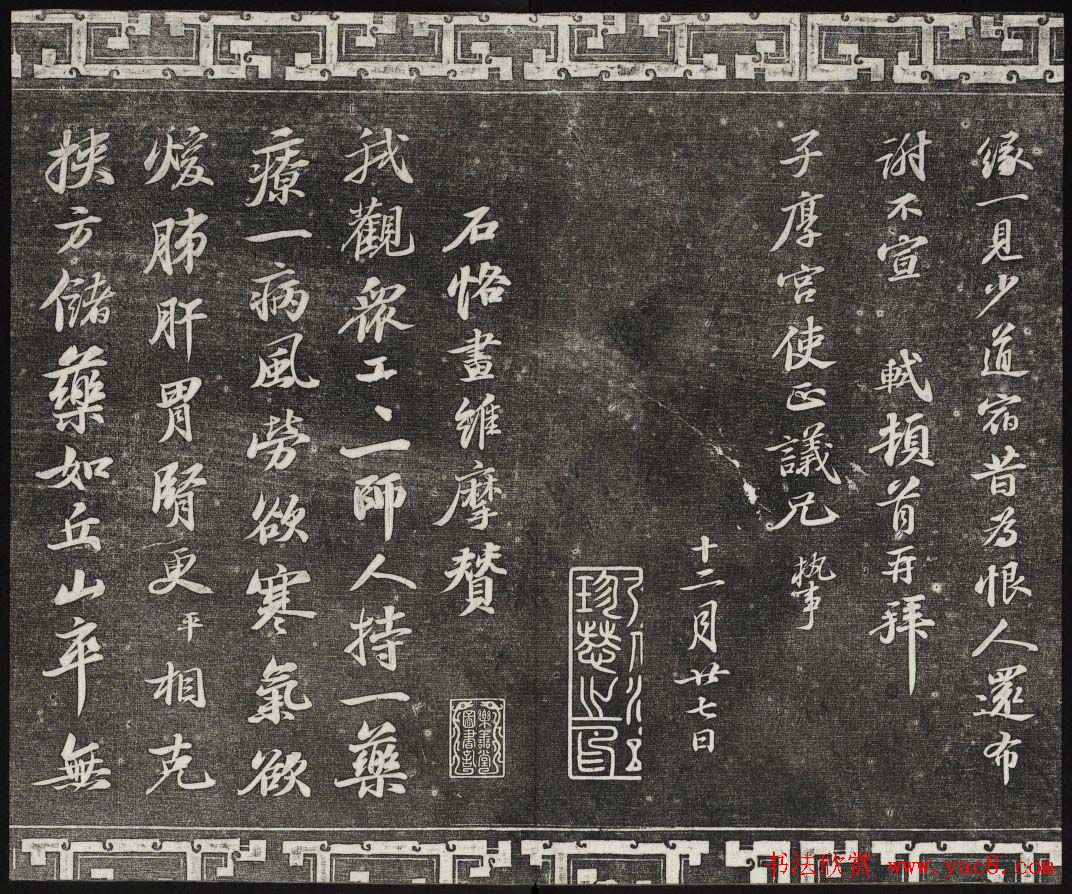 缘一見少道宿昔為恨人還布
謝不宣 軾頓首再拜
子厚宮使正議兄 執事
十二月廿七日
石恪畫維摩贊
我觀衆工工一師人持一藥
療一病風勞欲寒氣欲
煖肺肝胃腎更平相克
挾方儲藥如丘山卒無
樂善堂
圖書記
书法欣赏 www.yac8.com